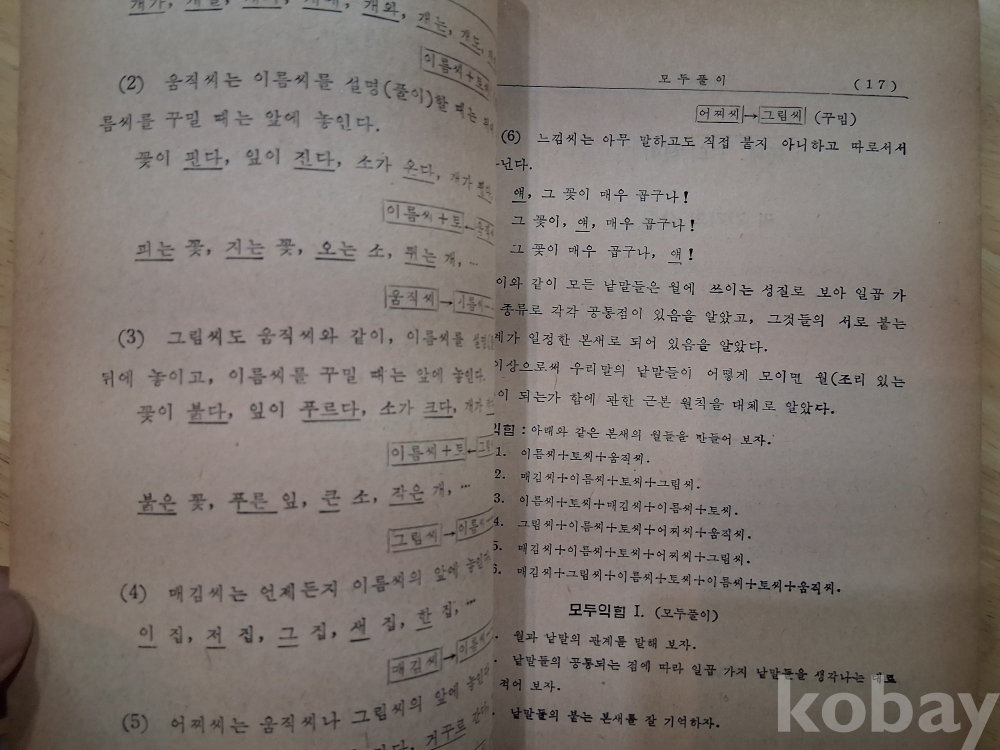 개가, 개를, 개의, 개에, 개와, 개는, 개도,
이름씨+토
(2) 움직씨는 이름씨를 설명(풀이)할 때는
름씨를 꾸밀 때는 앞에 놓인다.
꽃이 핀다, 잎이 진다, 소가 온다, 개가
이름씨+토←움직
피는 꽃, 지는 꽃, 오는 소, 뛰는 개, …
움직씨→이름씨
(3) 그림씨도 움직씨와 같이, 이름씨를 설명
뒤에 놓이고, 이름씨를 꾸밀 때는 앞에 놓인다.
꽃이 붉다, 잎이 푸르다, 소가 크다, 개가
이름씨+토←그림
붉은 꽃, 푸른 잎, 큰 소, 작은 개, …
그림씨→이름씨
(4) 매김씨는 언제든지 이름씨의 앞에 놓인
이 집, 저 집, 그 집, 새 집, 한 집, …
매김씨→이름씨
(5) 어찌씨는 움직씨나 그림씨의 앞에 놓인
거꾸로
모두풀이 (17)
어찌씨→그림씨 (꾸밈)
(6) 느낌씨는 아무 말하고도 직접 붙지 아니하고 따로서서
인다.
얘, 그 꽃이 매우 곱구나!
그 꽃이, 얘, 매우 곱구나!
그 꽃이 매우 곱구나, 얘!
이와 같이 모든 낱말들은 월에 쓰이는 성질로 보아 일곱 가
종류로 각각 공통점이 있음을 알았고, 그것들의 서로 붙는
계가 일정한 본새로 되어 있음을 알았다.
이상으로써 우리말의 낱말들이 어떻게 모이면 월(조리 있는
이 되는가 함에 관한 근본 원칙을 대체로 알았다.
익힘: 아래와 같은 본새의 월들을 만들어 보자.
1. 이름씨+토씨+움직씨.
2. 매김씨+이름씨+토씨+그림씨.
3. 이름씨+토씨+매김씨+이름씨+토씨.
4. 그림씨+이름씨+토씨+어찌씨+움직씨.
5. 매김씨+이름씨+토씨+어찌씨+그림씨.
6. 매김씨+그림씨+이름씨+토씨+이름씨+토씨+움직씨.
모두익힘 I. (모두풀이)
월과 낱말의 관계를 말해 보자.
낱말들의 공통되는 점에 따라 일곱 가지 낱말들을 생각나는 대로
적어 보자.
낱말들의 붙는 본새를 잘 기억하자.
kobay